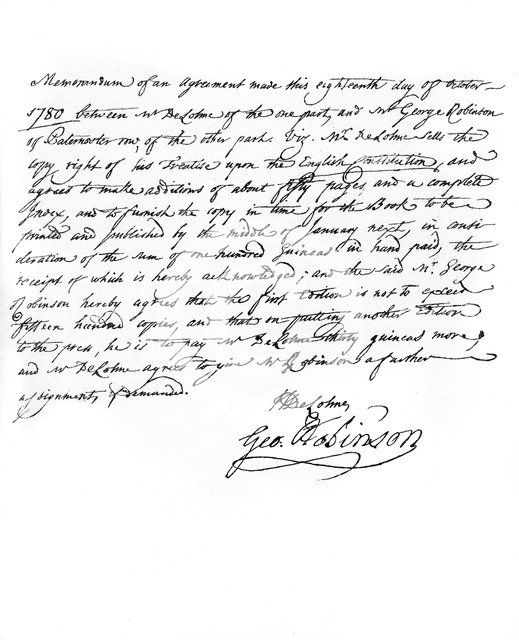 Memorandum of an Agreement made this eighteenth day of October
1780 between Mr DeLolme of the one part, and Mr George Robinson
of Paternoster row, of the other part. Viz. Mr. DeLolme sells the
copy right of his Treatise upon the English Constitution, and
agrees to make additions of about fifty pages, and a complete
Index, and to furnish the copy in time for the Book to be
printed and published by the middle of January next, in consi-
deration of the sum of one hundred Guineas in hand paid, the
receipt of which is hereby acknowledged; and the said Mr. George
Robinson hereby agrees that the first Edition is not to exceed
fifteen hundred copies, and that on putting another Edition
to the press, he is to pay Mr DeLolme thirty guineas more,
and Mr DeLolme agrees to give Mr Robinson a further
assignment, if demanded.
DeLolme,
Geo. Robinson